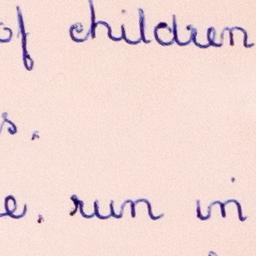 of children
s.
e. run in